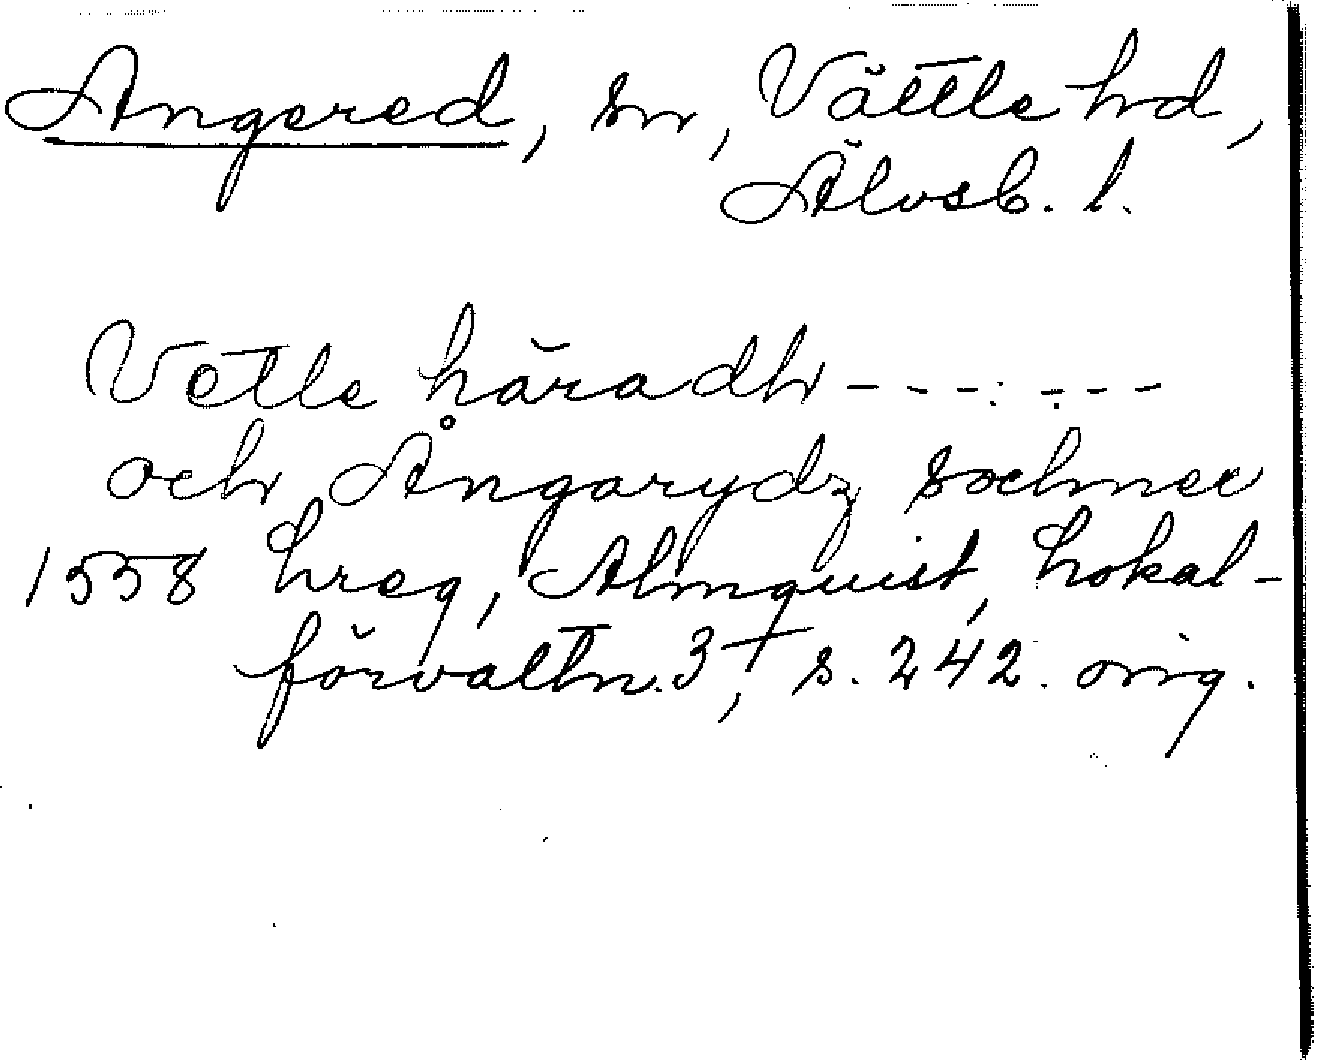 Angered, sn, Vättle hd,
Älvsb. l.
Vetle häradh - - - - : - - -
och Ångarydz sochnee
1558 hreg, Almquist, Lokal-
förvaltn. 3†, s. 242. orig.